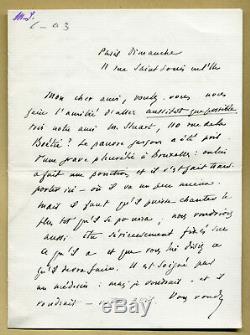 Paris Dimanche
11 rue Saint Louis en l'Ile
Mon cher ami, voulez-vous nous
faire l'amitié d'aller aussitôt que possible
voir notre ami M. Stuart, 110 rue de la
Boétie? Le pauvre garçon a été pris
d'une grave pleurésie à Bruxelles: on lui
a fait une ponction, et il s'est fait trans-
porter ici - où il va un peu mieux.
Mais il faut qu'il puisse chanter le
plus tôt qu'il se pourra; nous voudrions
aussi être sérieusement fixés sur
ce qu'il a et que vous lui disiez ce
qu'il devra faire. Il est soigné par
un médecin, mais je voudrais, et il
voudrait
Vous voudrez